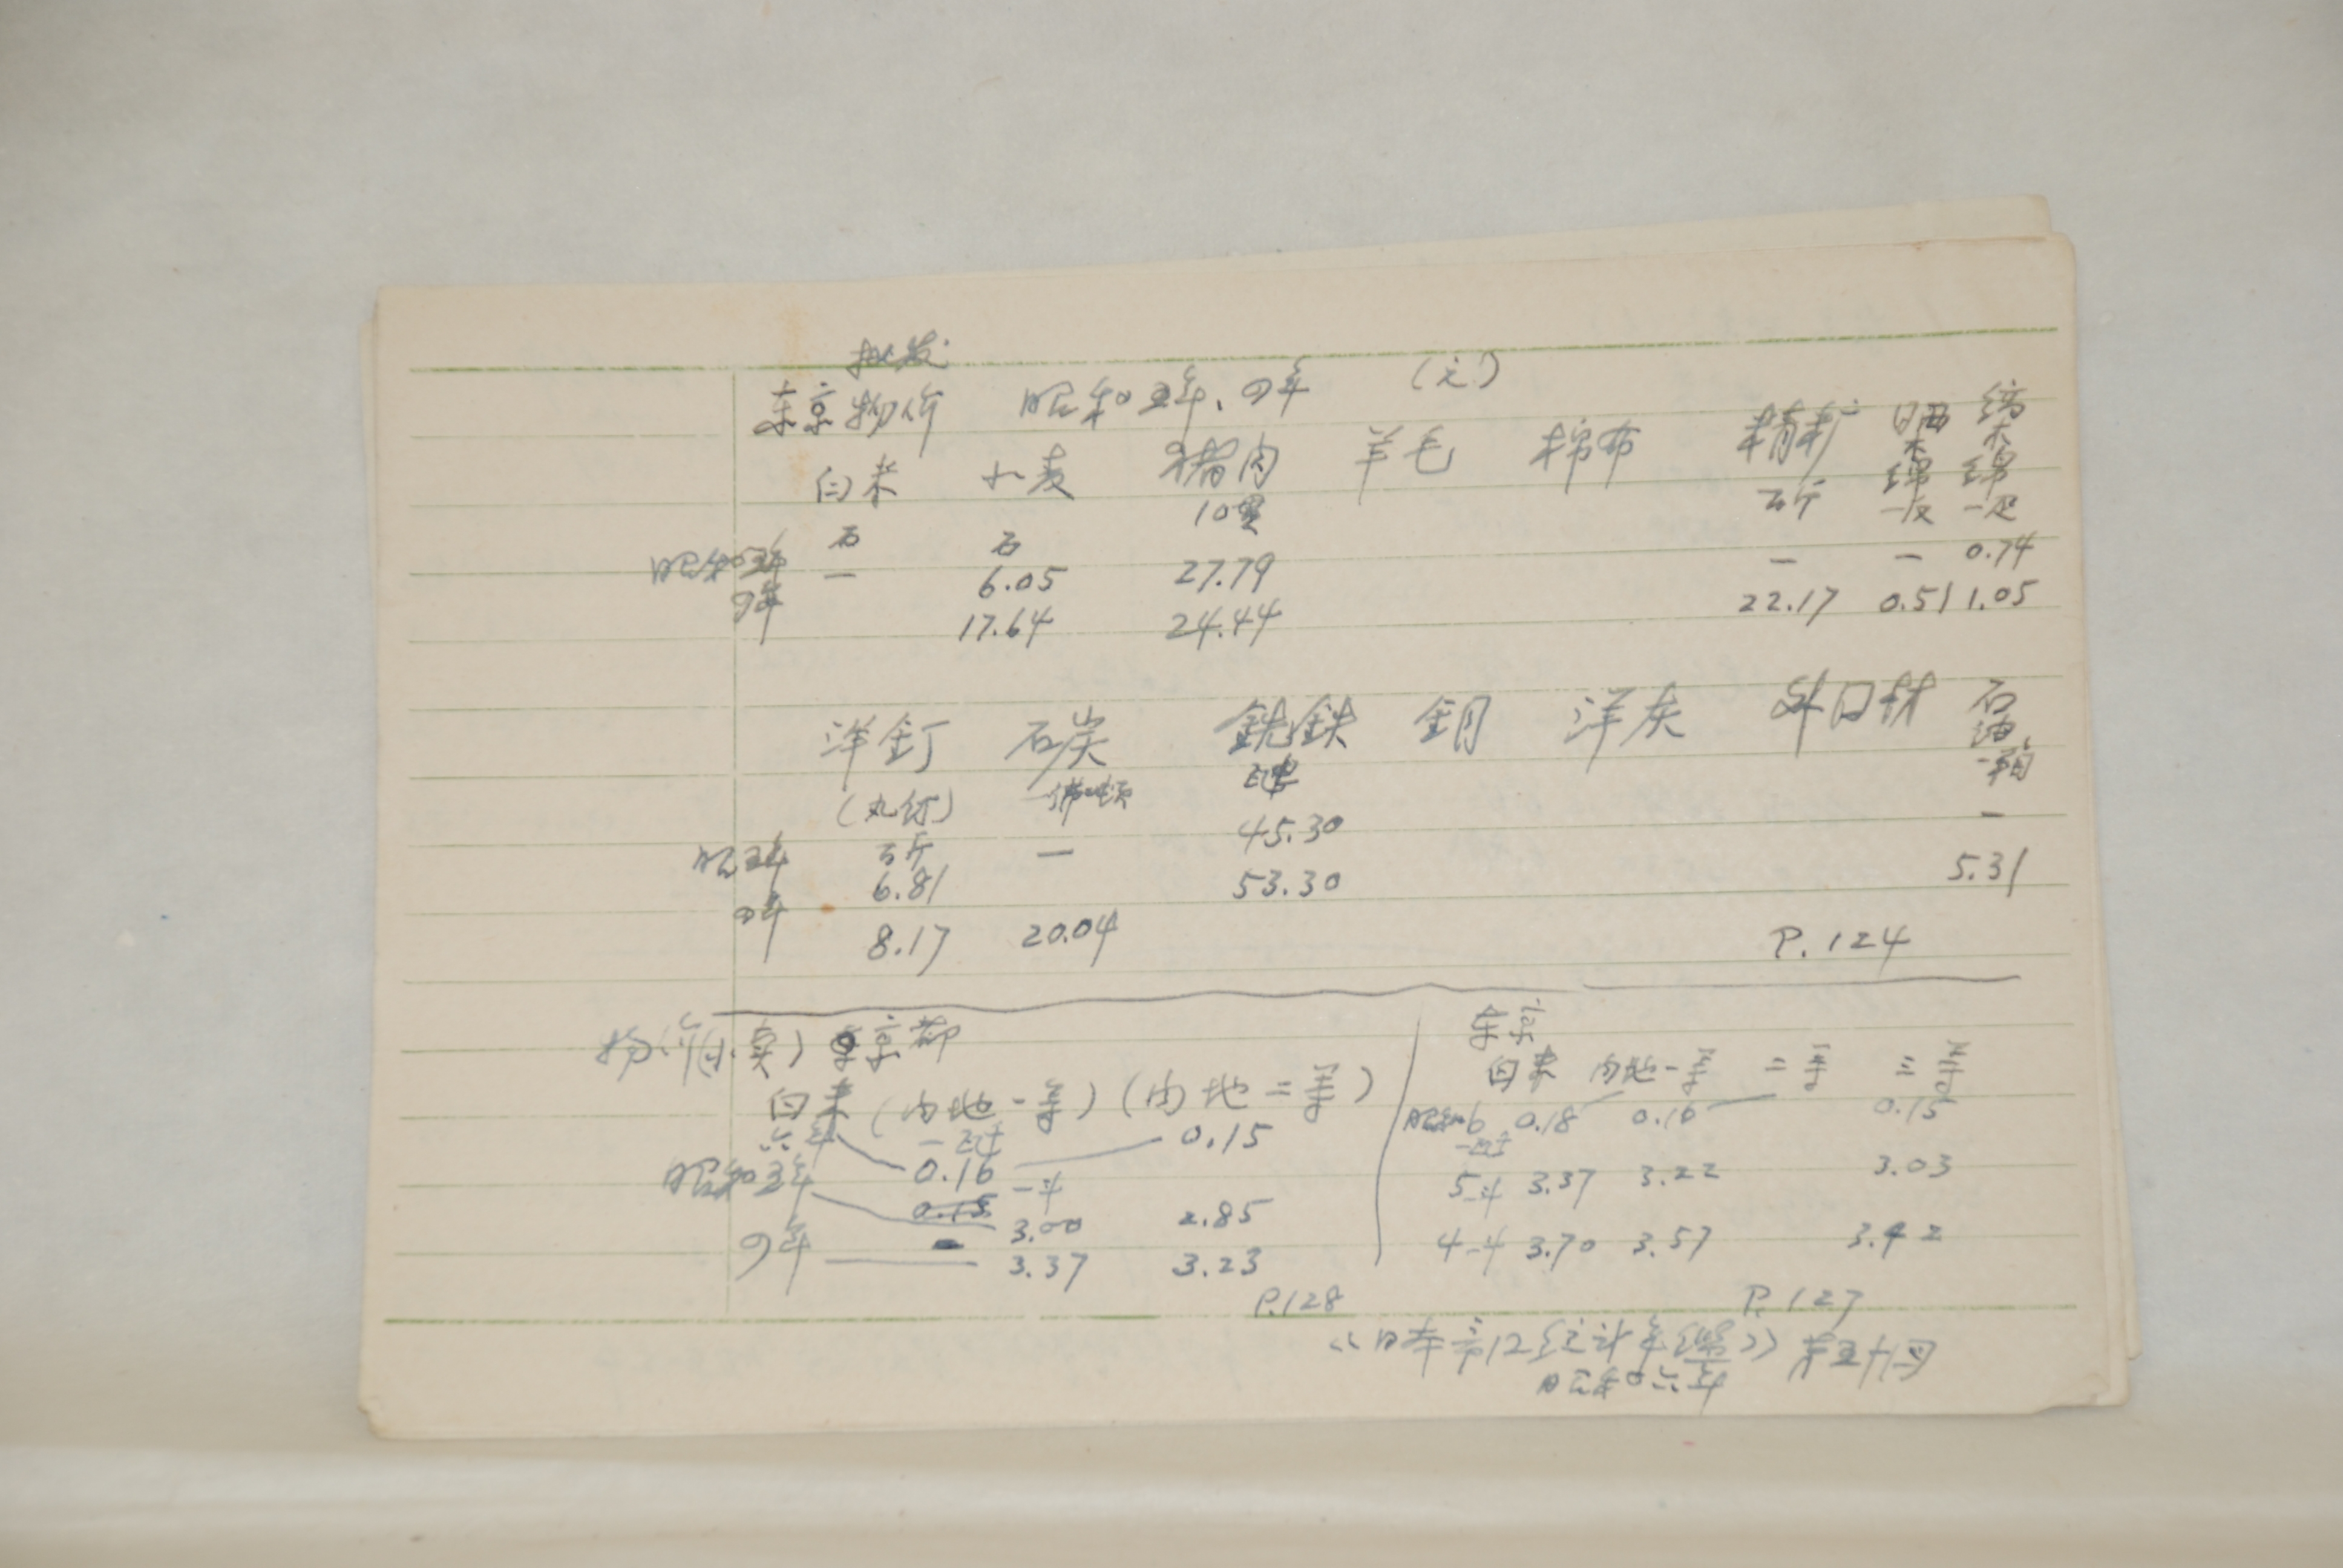 批发
东京物价 昭和五年、四年 (元)
白米 小麦 猪肉 羊毛 棉布 精糖 晒木绵 纹木绵
石 石 10貫 百斤 一反 一疋
昭和五年 — 6.05 27.79 — — 0.74
四年 17.64 24.44 22.17 0.51 1.05
洋釘 石炭 銑鉄 銅 洋灰 外口材 石油
(丸釘) 一佛噸 一箱
百斤
昭五年 6.81 — 45.30 —
四年 8.17 20.04 53.30 5.31
P.124
物价(小卖) 京都
白米 (内地一等) (内地二等)
六年 0.16 0.15
昭和五年 一斗 3.00 2.85
四年 3.37 3.23
P.128
东京
白米 内地一等 二等 三等
昭和6 0.18 0.16 0.15
5 一斗 3.37 3.22 3.03
4 一斗 3.70 3.57 3.42
P.127
《日本帝国统计年鑑》第五十回
昭和六年